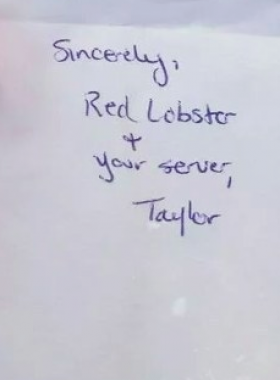 Sincerely,
Red Lobster
+
your server,
Taylor